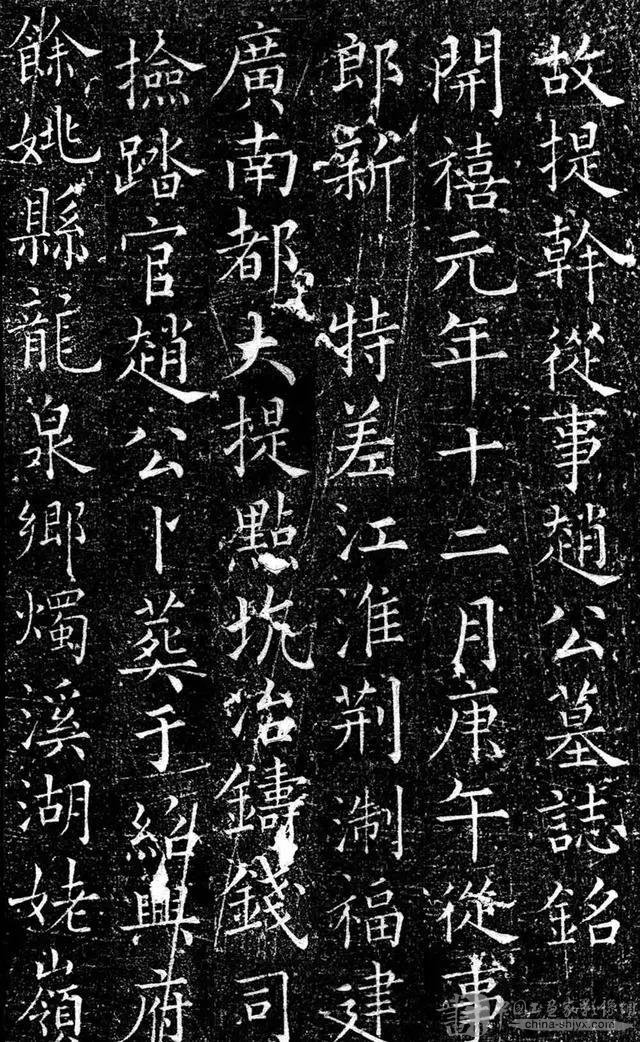 故提幹從事趙公墓誌銘
開禧元年十二月庚午從事
郎新　特差江淮荆淛福建
廣南都大提點坑冶鑄錢司
撿踏官趙公卜葬于紹興府
餘姚縣龍泉鄉燭溪湖姥嶺
china-shjyx.com